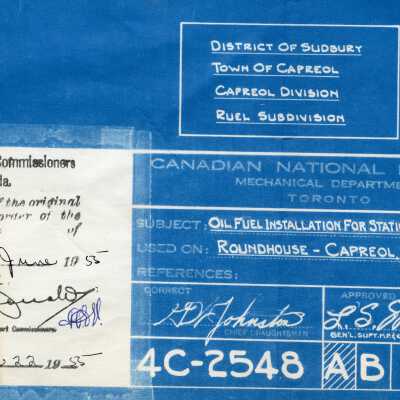 DISTRICT OF SUDBURY
TOWN OF CAPREOL
CAPREOL DIVISION
RUEL SUBDIVISION
Commissioners
da.
of the original
order of the
" of
June 1955
CANADIAN NATIONAL
MECHANICAL DEPARTME
TORONTO
SUBJECT: OIL FUEL INSTALLATION FOR STATI
USED ON: ROUNDHOUSE - CAPREOL,
REFERENCES:
CORRECT
Johnston
CHIEF DRAUGHTSMAN
APPROVED
L.S.
GEN'L. SUPT. M.P.
ort Commissioners
22 1955
4C-2548 A B